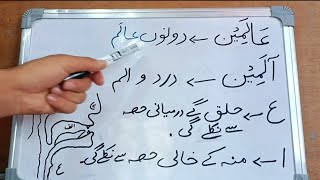 عَالَمِیْن ← دونوں عالَم
آلَمِیْن ← درد و الم
ع ← حلق کے درمیانی حصہ
سے نکلے گی۔
ا ← منہ کے خالی حصہ سے نکلے گی۔
ع